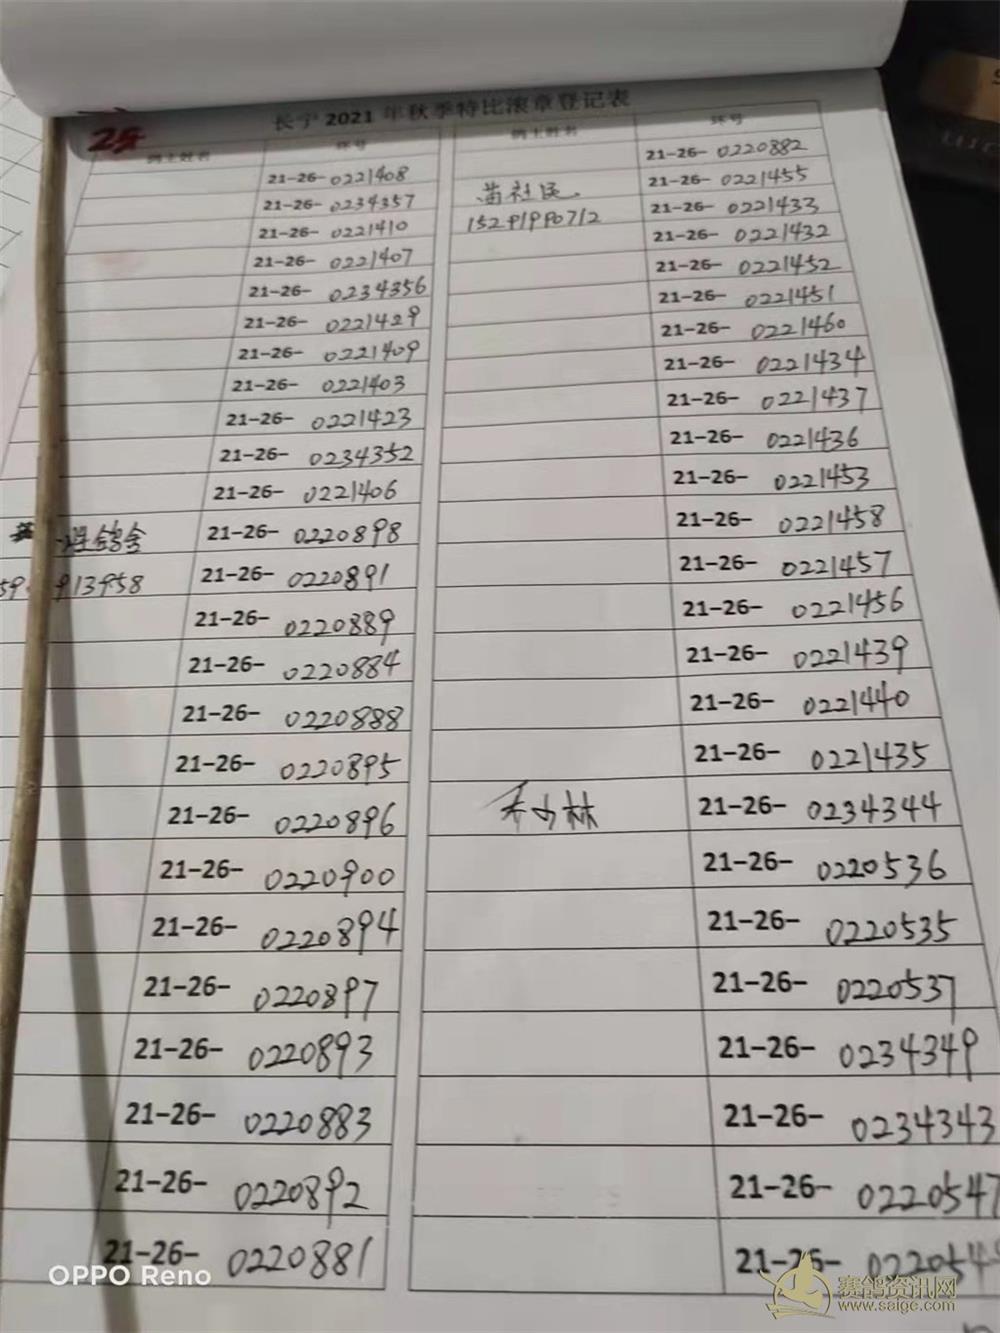 长宁 2021 年秋季特比滚章登记表
鸽主姓名 环号
21-26- 0221408
21-26- 0234357
21-26- 0221410
21-26- 0221407
21-26- 0234356
21-26- 0221429
21-26- 0221409
21-26- 0221403
21-26- 0221423
21-26- 0234352
21-26- 0221406
鸽舍 21-26- 0220898
913958 21-26- 0220891
21-26- 0220889
21-26- 0220884
21-26- 0220888
21-26- 0220895
21-26- 0220896
21-26- 0220900
21-26- 0220894
21-26- 0220897
21-26- 0220893
21-26- 0220883
21-26- 0220892
21-26- 0220881
鸽主姓名 环号
21-26- 0220882
苗社民 21-26- 0221455
15291990712 21-26- 0221433
21-26- 0221432
21-26- 0221452
21-26- 0221451
21-26- 0221460
21-26- 0221434
21-26- 0221437
21-26- 0221436
21-26- 0221453
21-26- 0221458
21-26- 0221457
21-26- 0221456
21-26- 0221439
21-26- 0221440
21-26- 0221435
21-26- 0234344
21-26- 0220536
21-26- 0220535
21-26- 0220537
21-26- 0234349
21-26- 0234343
21-26- 0220547
21-26- 022054
OPPO Reno
赛鸽资讯网
www.saige.com